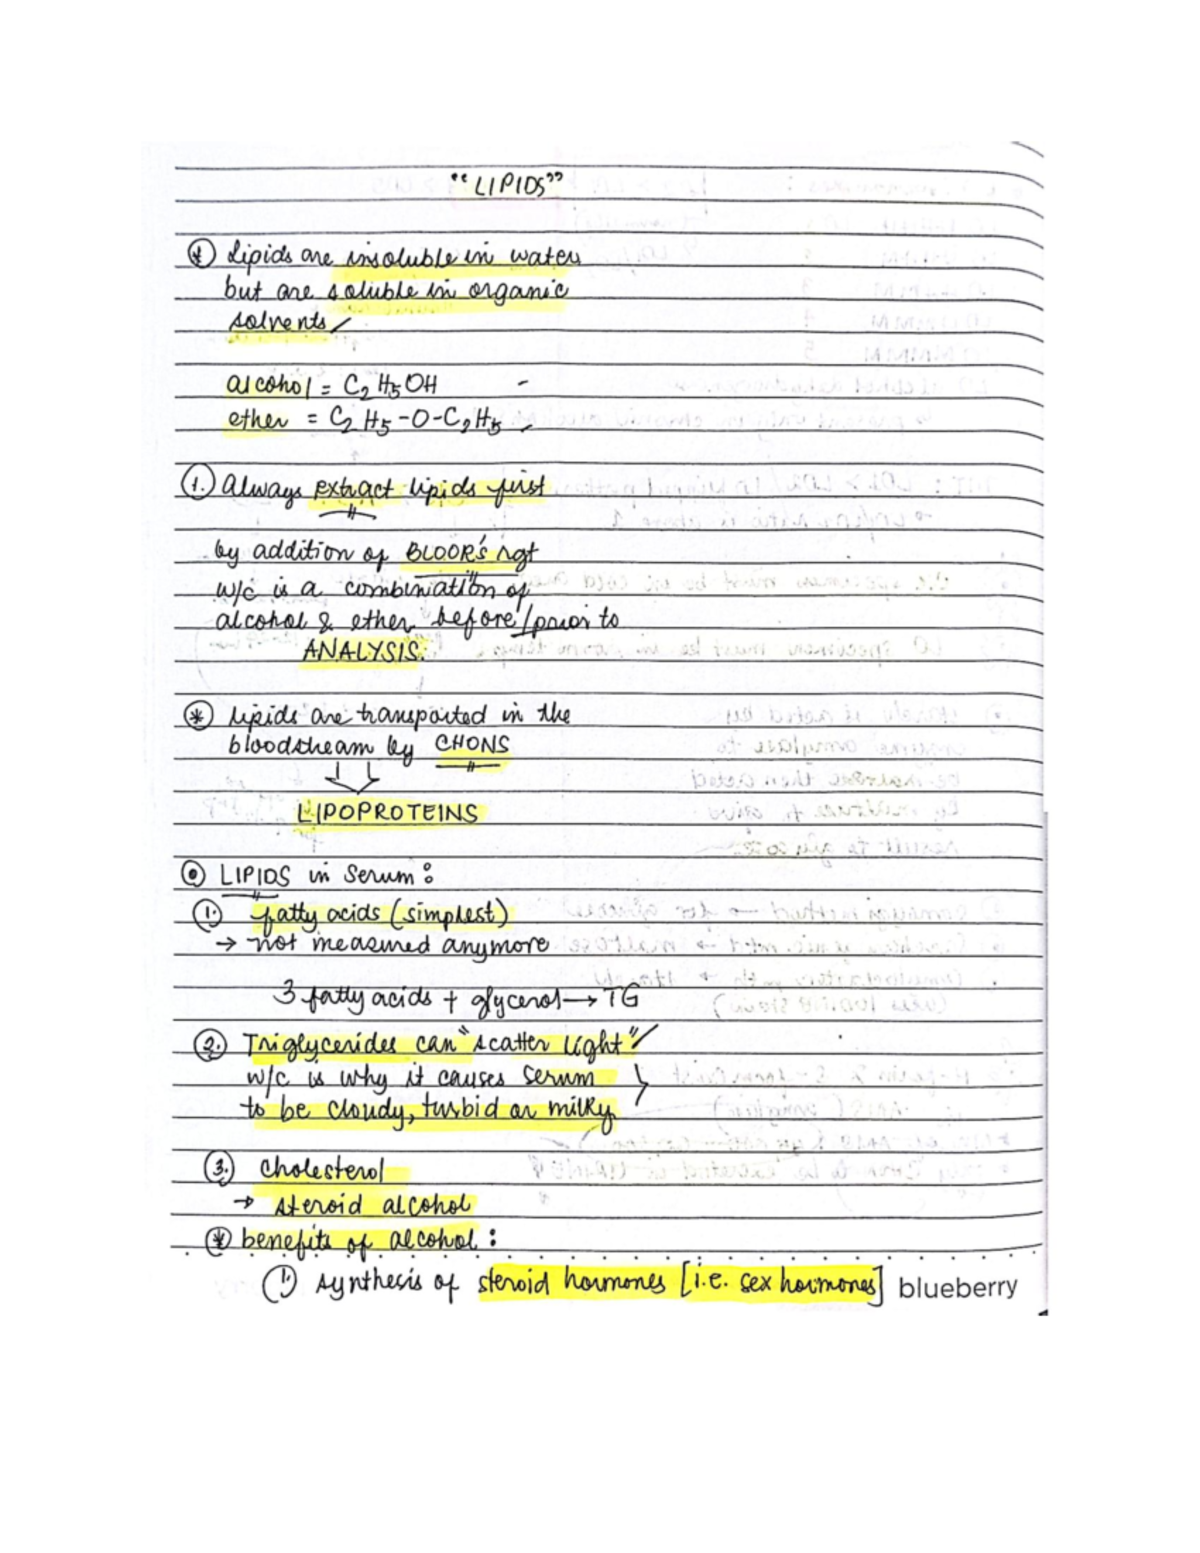 "LIPIDS"
* Lipids are insoluble in water
but are soluble in organic
solvents
alcohol = C2H5OH
ether = C2H5-O-C2H5
1. Always extract lipids first
by addition of BLOOR's rgt
w/c is a combination of
alcohol & ether before/prior to
ANALYSIS.
* lipids are transported in the
bloodstream by CHONS
LIPOPROTEINS
LIPIDS in serum:
1. fatty acids (simplest)
→ not measured anymore
3 fatty acids + glycerol → TG
2. Triglycerides can "scatter light"
w/c is why it causes serum
to be cloudy, turbid or milky
3. Cholesterol
→ steroid alcohol
* benefits of alcohol:
1. synthesis of steroid hormones [i.e. sex hormones] blueberry